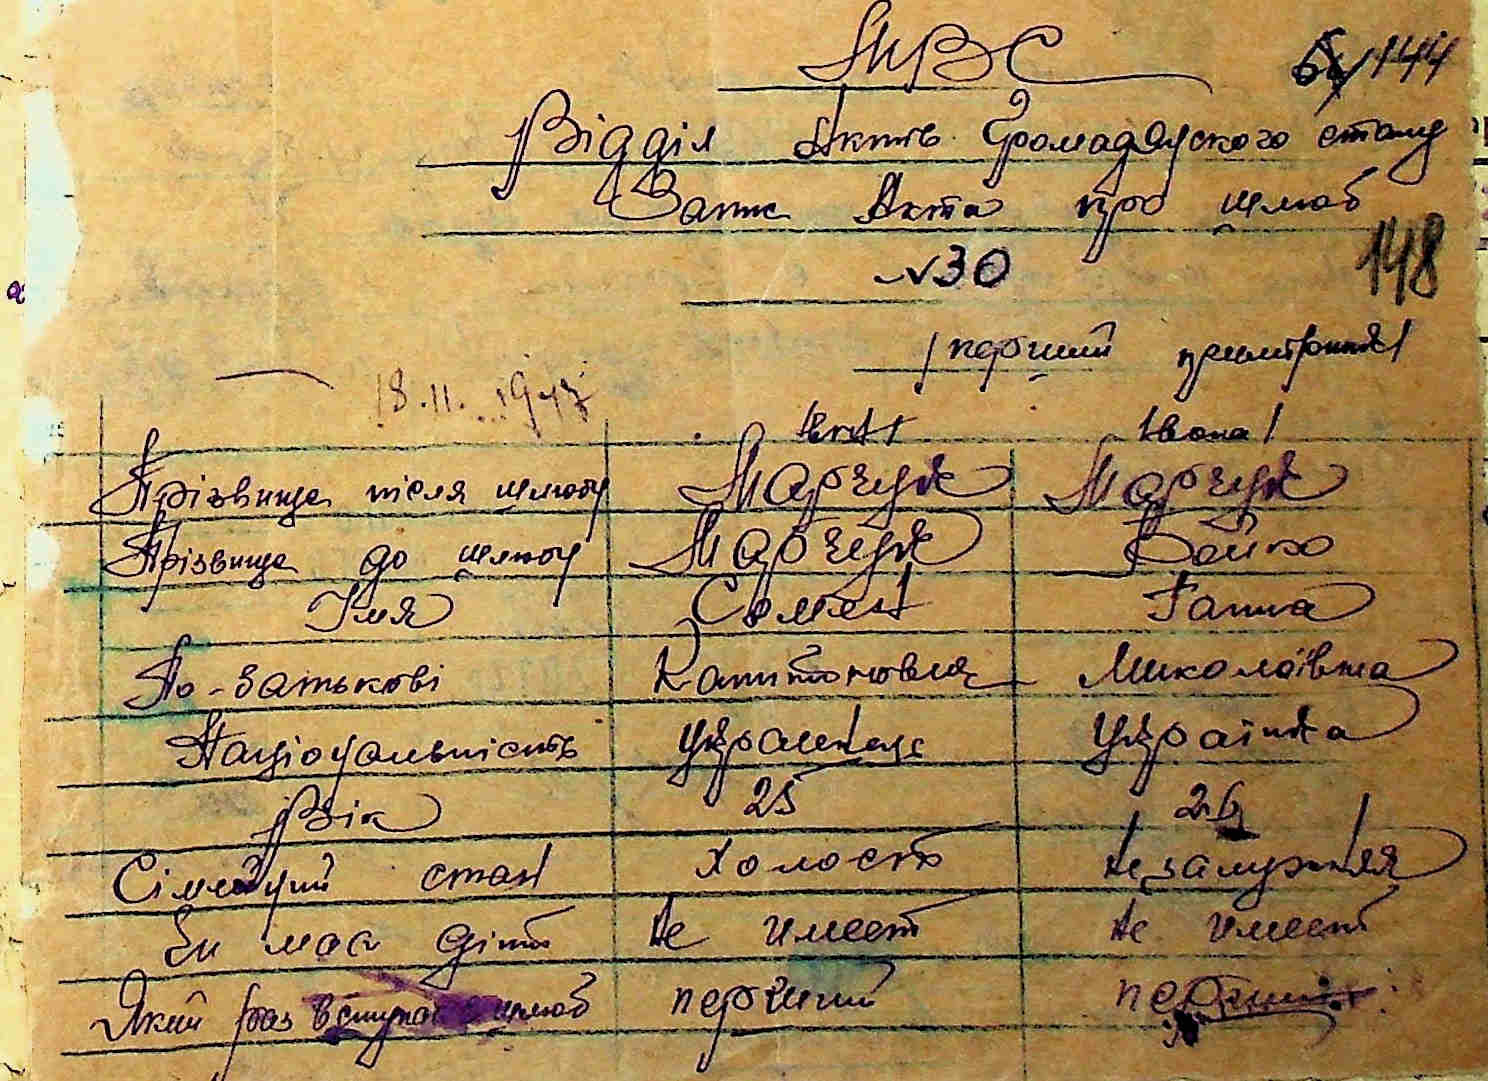 МВС
144
Відділ Актів Громадянського стану
Запис Акта про шлюб
148
№30
/перший примірник/
18.11.1947
/він/ /вона/
Прізвище після шлюбу Марчук Марчук
Прізвище до шлюбу Марчук Бойко
Імя Семен Ганна
По-батькові Капитонович Миколаївна
Національність Українець Українка
Вік 25 26
Сімейний стан холост незамужняя
Чи має діти Не имеет Не имеет
Який раз вступає в шлюб перший перший